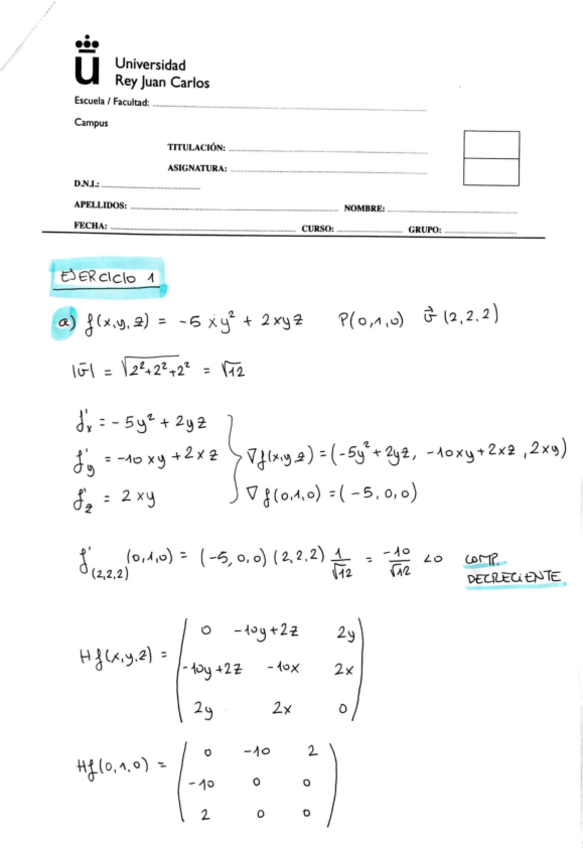 Universidad
Rey Juan Carlos
Escuela / Facultad:
Campus
TITULACIÓN:
ASIGNATURA:
D.N.I.:
APELLIDOS: NOMBRE:
FECHA: CURSO: GRUPO:
EJERCICIO 1
a) f(x,y,z) = -5xy² + 2xyz P(0,1,0) v⃗ (2,2,2)
|v̄| = √(2²+2²+2²) = √12
f'x = -5y² + 2yz
f'y = -10xy + 2xz ∇f(x,y,z) = (-5y² + 2yz, -10xy + 2xz, 2xy)
f'z = 2xy ∇f(0,1,0) = (-5,0,0)
f'(2,2,2) (0,1,0) = (-5,0,0)(2,2,2) 1/√12 = -10/√12 <0 COMP.
DECRECIENTE
Hf(x,y,z) =
0 -10y+2z 2y
-10y+2z -10x 2x
2y 2x 0
Hf(0,1,0) =
0 -10 2
-10 0 0
2 0 0